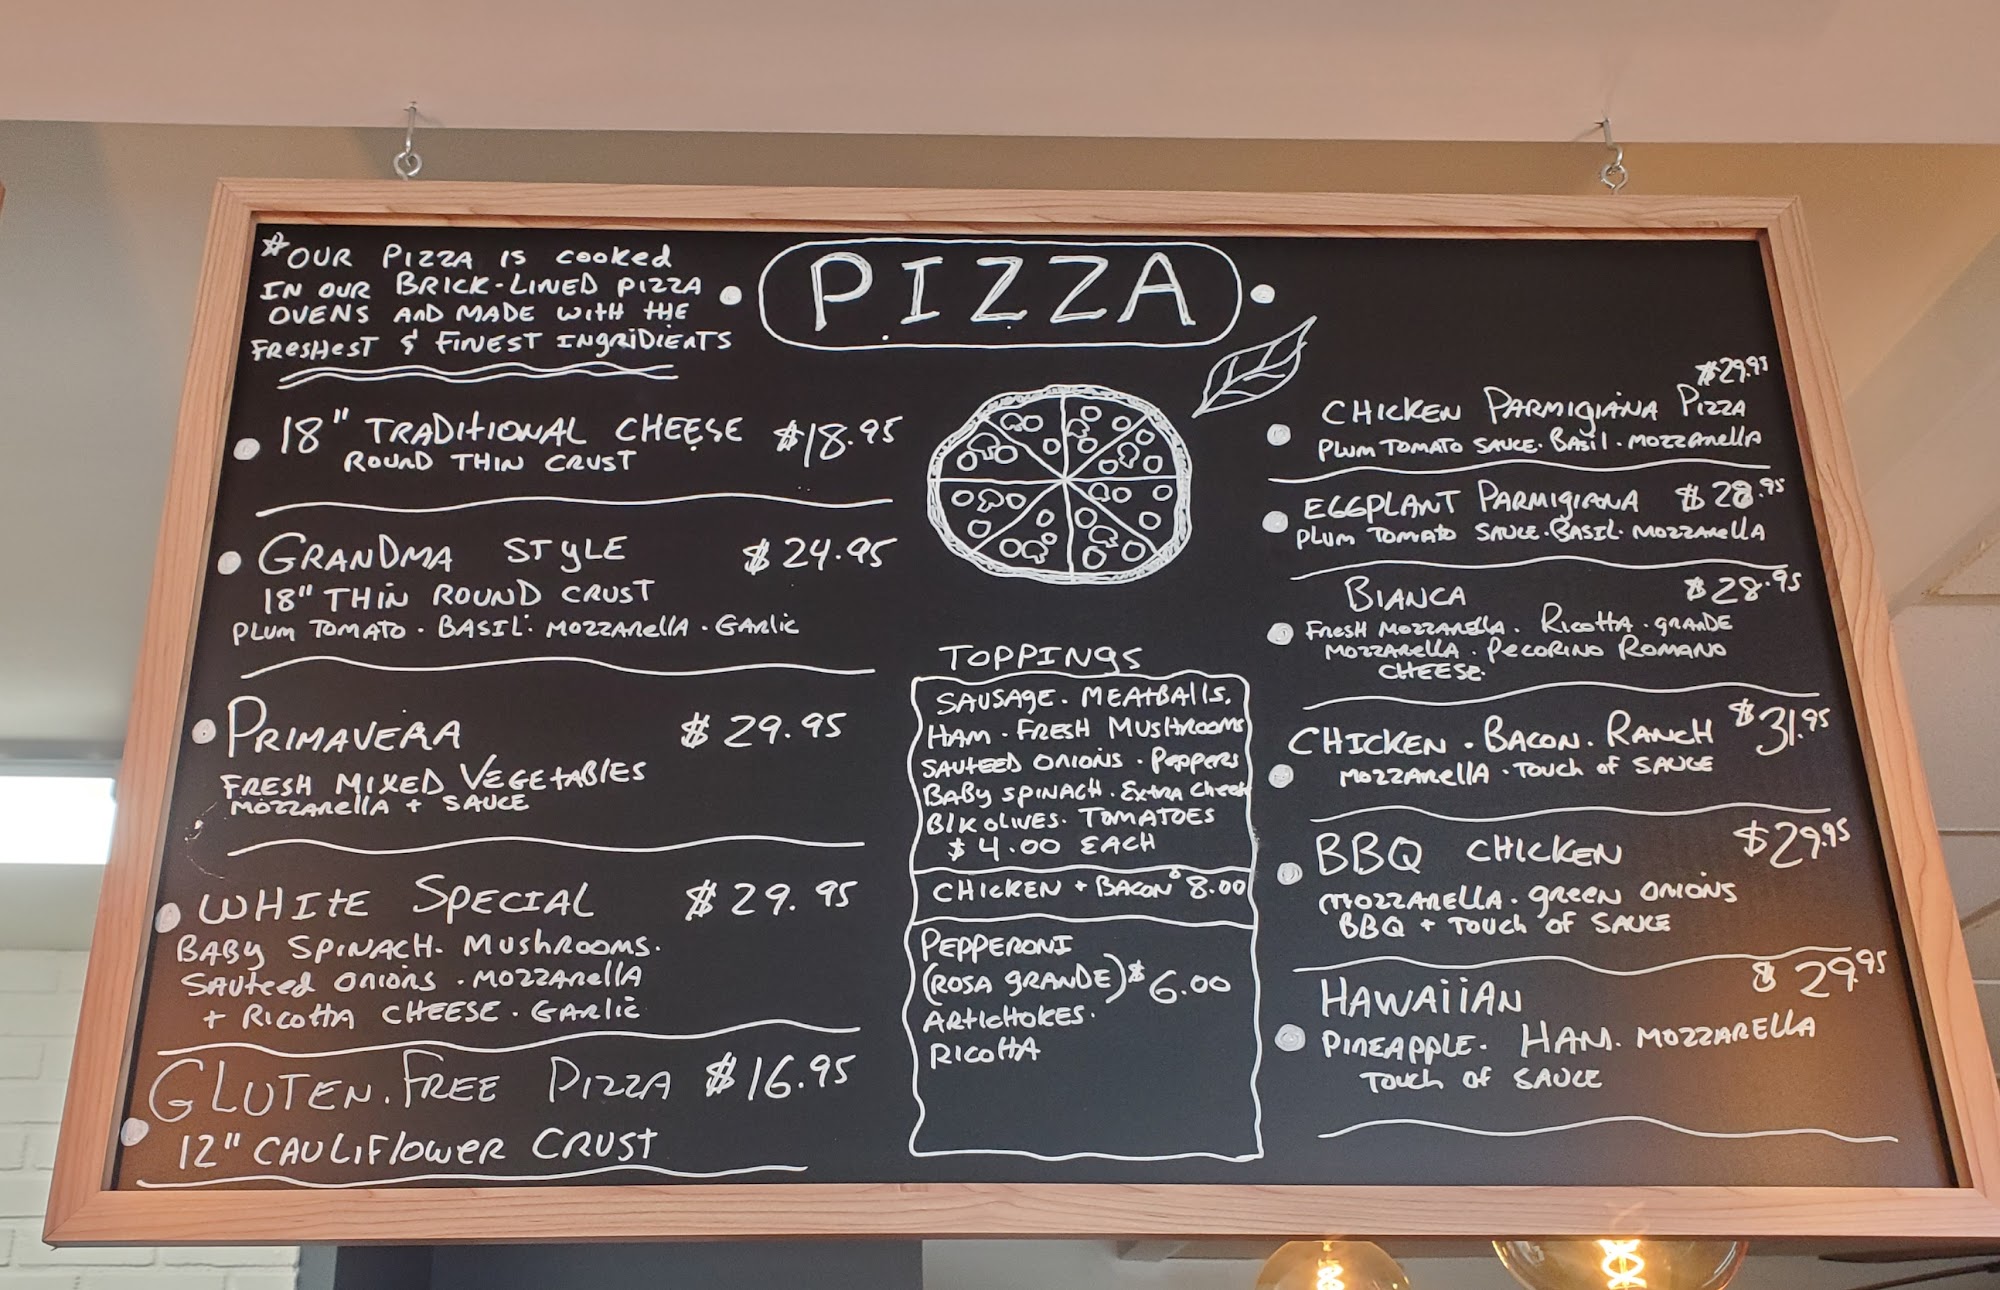 *OUR PIZZA IS COOKED
IN OUR BRICK-LINED PIZZA
OVENS AND MADE WITH THE
FRESHEST & FINEST INGRIDIENTS
PIZZA
18" TRADITIONAL CHEESE $18.95
ROUND THIN CRUST
GRANDMA STYLE $24.95
18" THIN ROUND CRUST
PLUM TOMATO · BASIL · MOZZARELLA · GARLIC
PRIMAVERA $29.95
FRESH MIXED VEGETABLES
MOZZARELLA + SAUCE
WHITE SPECIAL $29.95
BABY SPINACH · MUSHROOMS ·
SAUTEED ONIONS · MOZZARELLA
+ RICOTTA CHEESE · GARLIC
GLUTEN · FREE PIZZA $16.95
12" CAULIFLOWER CRUST
TOPPINGS
SAUSAGE · MEATBALLS ·
HAM · FRESH MUSHROOMS
SAUTEED ONIONS · PEPPERS
BABY SPINACH · EXTRA CHEESE
BLK OLIVES · TOMATOES
$4.00 EACH
CHICKEN + BACON $8.00
PEPPERONI
(ROSA GRANDE) $6.00
ARTICHOKES ·
RICOTTA
$29.95
CHICKEN PARMIGIANA PIZZA
PLUM TOMATO SAUCE · BASIL · MOZZARELLA
EGGPLANT PARMIGIANA $28.95
PLUM TOMATO SAUCE · BASIL · MOZZARELLA
BIANCA $28.95
FRESH MOZZARELLA · RICOTTA · GRANDE
MOZZARELLA · PECORINO ROMANO
CHEESE ·
CHICKEN · BACON · RANCH $31.95
MOZZARELLA · TOUCH OF SAUCE
BBQ CHICKEN $29.95
MOZZARELLA · GREEN ONIONS
BBQ + TOUCH OF SAUCE
HAWAIIAN $29.95
PINEAPPLE · HAM · MOZZARELLA
TOUCH OF SAUCE